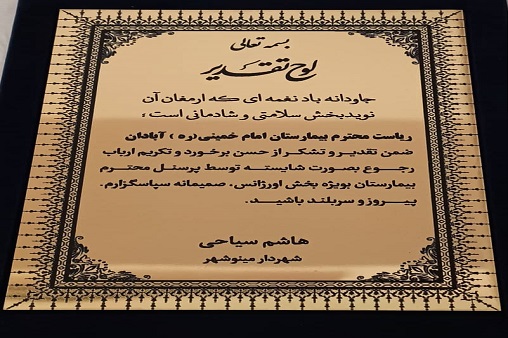 بسمه تعالی
لوح تقدیر
جاودانه باد نغمه ای که ارمغان آن
نویدبخش سلامتی و شادمانی است ؛
ریاست محترم بیمارستان امام خمینی(ره ) آبادان
ضمن تقدیر و تشکر از حسن برخورد و تکریم ارباب
رجوع بصورت شایسته توسط پرسنل محترم
بیمارستان بویژه بخش اورژانس، صمیمانه سپاسگزارم.
پیروز و سربلند باشید.
هاشم سیاحی
شهردار مینوشهر